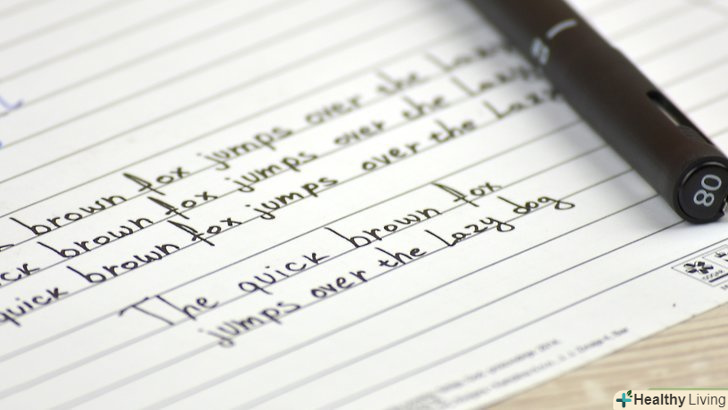 brown fox jumps over the lazy
quick brown fox jumps over the lazy
quick brown fox jumps over the lazy
The quick brown fox
jumps over the lazy dog
08
Healthy Living